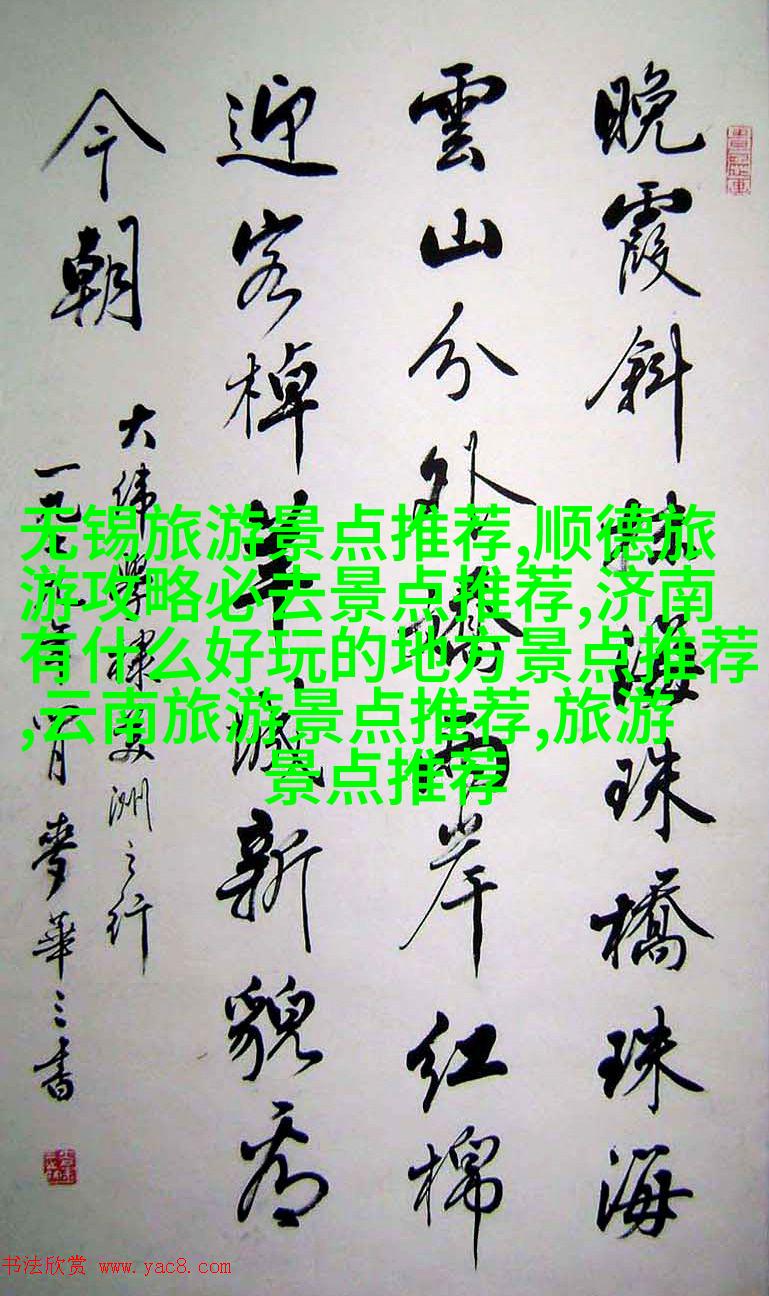 晚霞斜映海珠橋珠海
雲山分外嬌兩岸紅棉
迎客棹羊城新貌看
今朝
大偉學棣美洲之行
一九七年四月麥華三書
无锡旅游景点推荐,顺德旅
游攻略必去景点推荐,济南
有什么好玩的地方景点推荐
,云南旅游景点推荐,旅游
景点推荐
书法欣赏 www.yac8.com